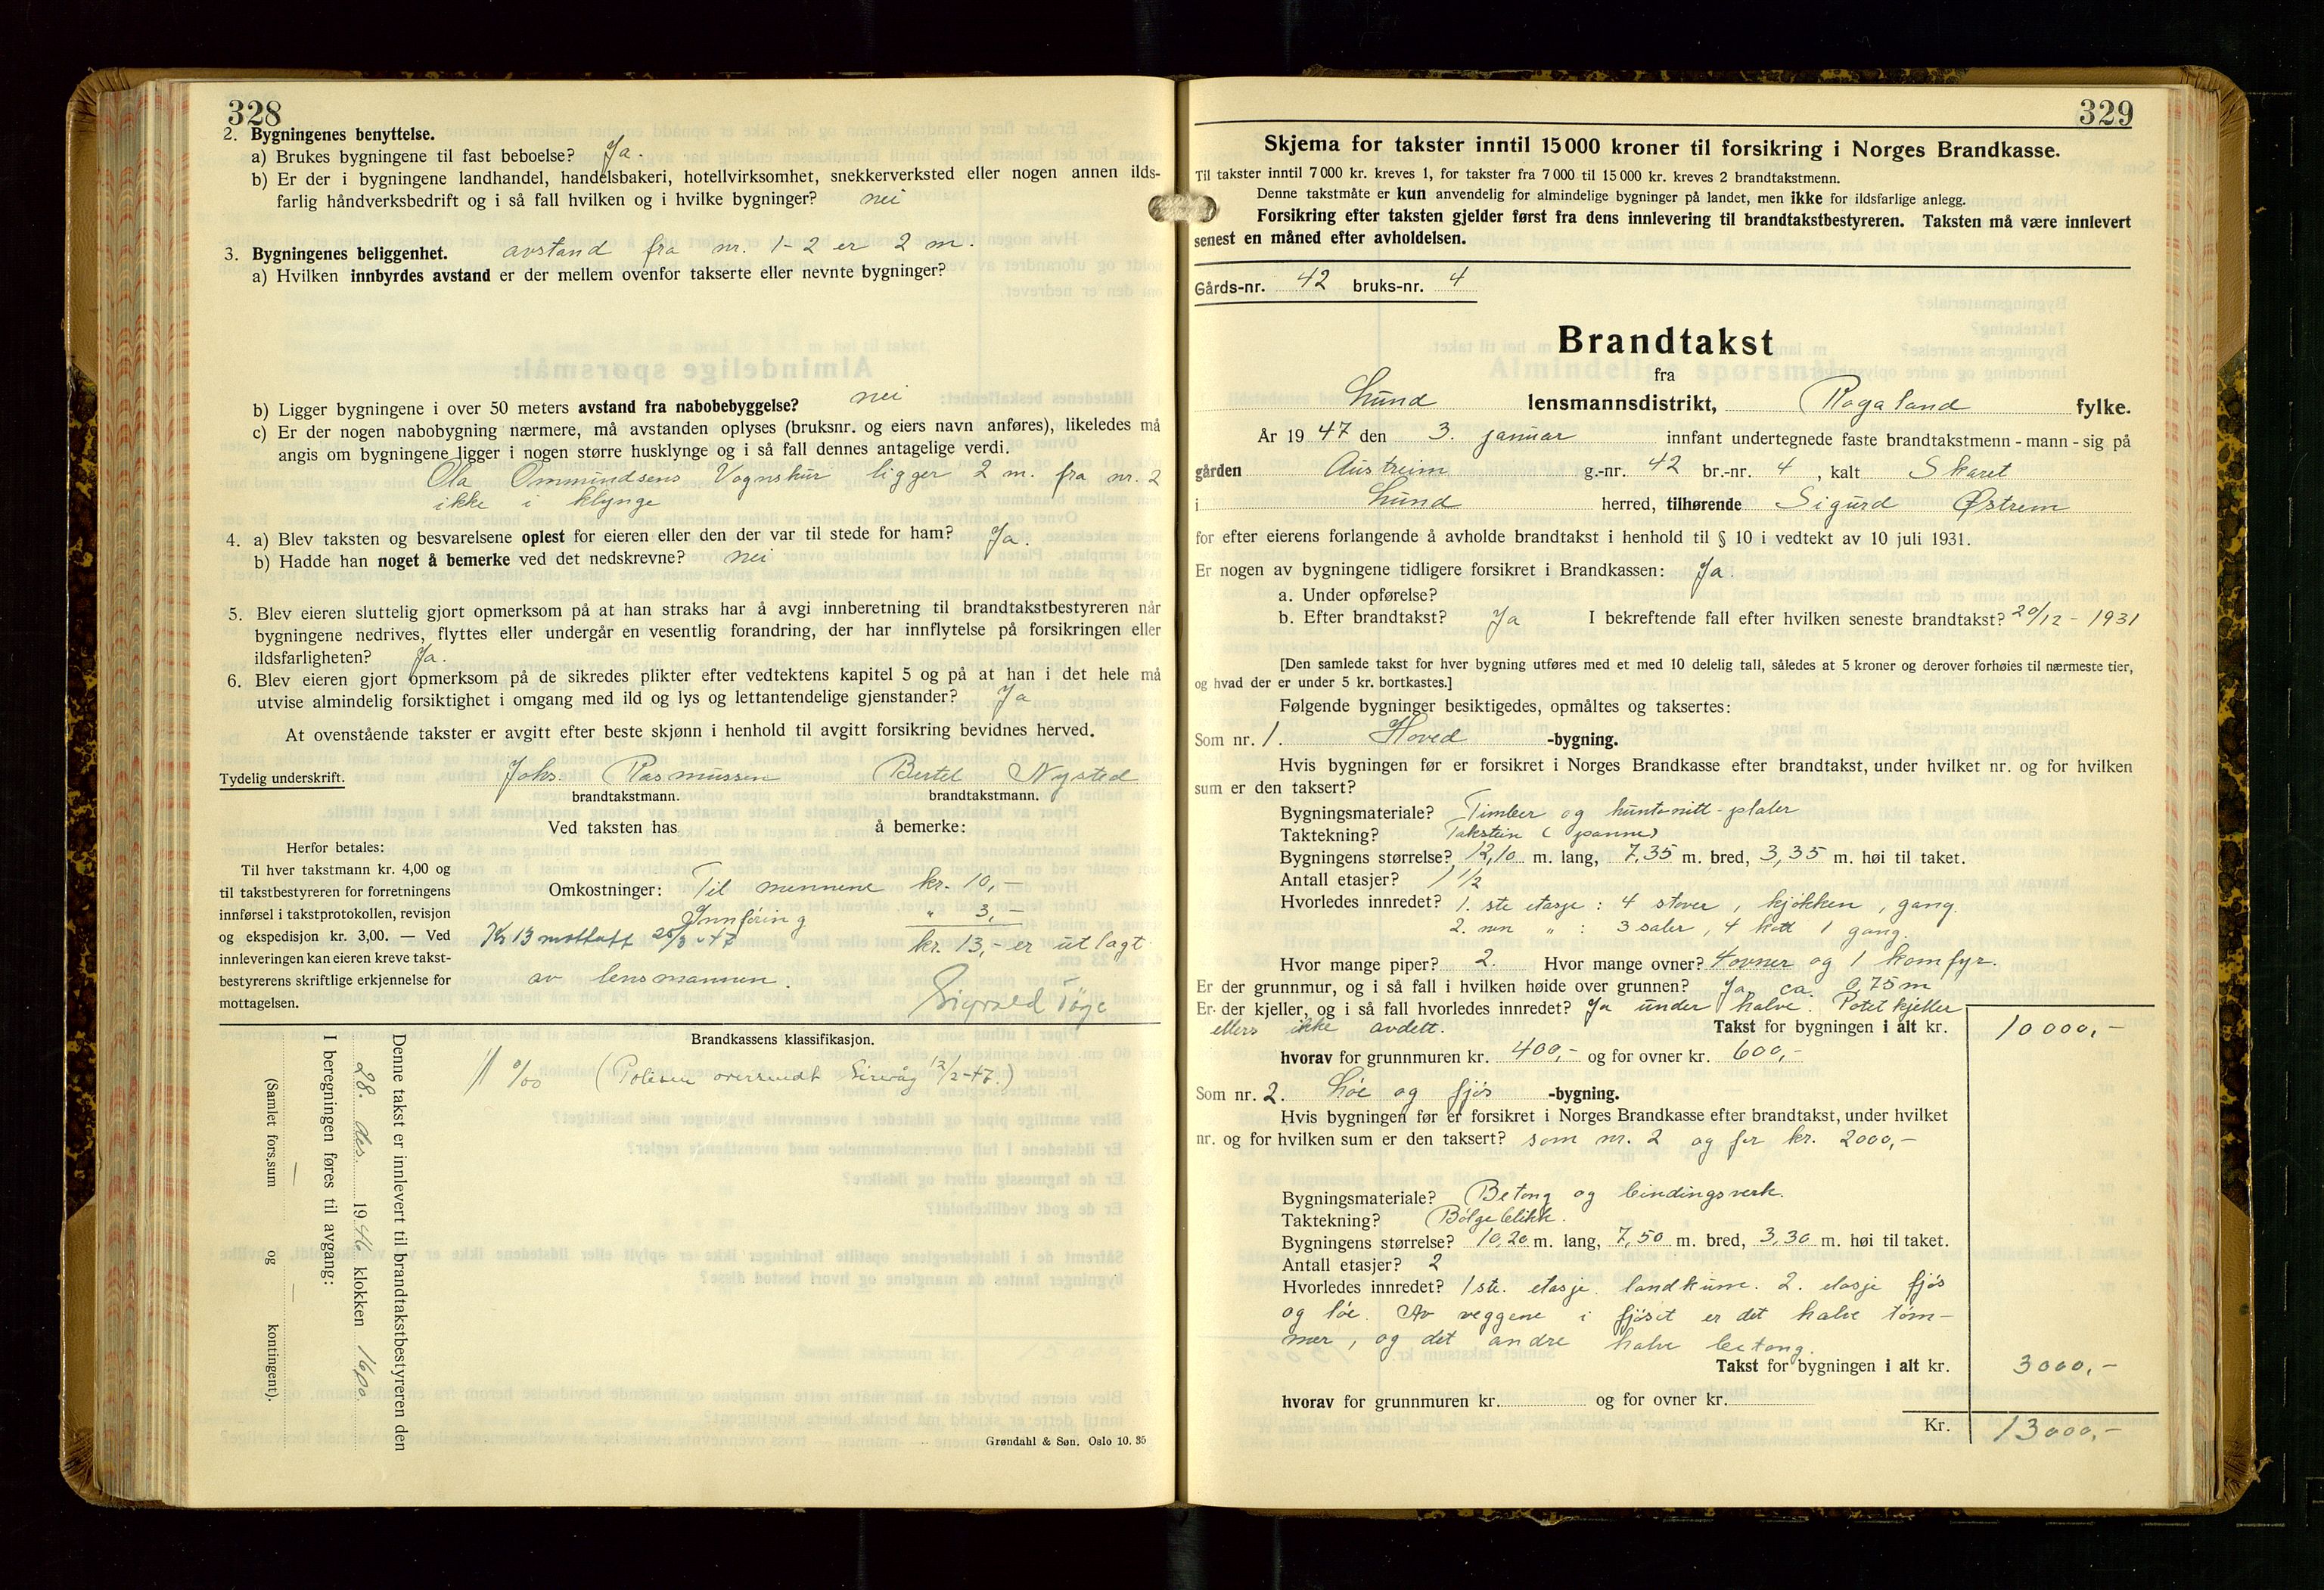 328
2. Bygningenes benyttelse.
a) Brukes bygningene til fast beboelse? Ja.
b) Er der i bygningene landhandel, handelsbakeri, hotellvirksomhet, snekkerverksted eller nogen annen ilds-
farlig håndverksbedrift og i så fall hvilken og i hvilke bygninger? nei
3. Bygningenes beliggenhet. avstand fra nr. 1-2 er 2 m.
a) Hvilken innbyrdes avstand er der mellem ovenfor takserte eller nevnte bygninger?
b) Ligger bygningene i over 50 meters avstand fra nabobebyggelse? nei
c) Er der nogen nabobygning nærmere, må avstanden oplyses (bruksnr. og eiers navn anføres), likeledes må
angis om bygningene ligger i nogen større husklynge og i så fall dennes antagelige verdi.
Ola Ommundsens Vognskur ligger 2 m. fra nr. 2
ikke i klynge
4. a) Blev taksten og besvarelsene oplest for eieren eller den der var til stede for ham? Ja.
b) Hadde han noget å bemerke ved det nedskrevne? nei
5. Blev eieren sluttelig gjort opmerksom på at han straks har å avgi innberetning til brandtakstbestyreren når
bygningene nedrives, flyttes eller undergår en vesentlig forandring, der har innflytelse på forsikringen eller
ildsfarligheten? Ja.
6. Blev eieren gjort opmerksom på de sikredes plikter efter vedtektens kapitel 5 og på at han i det hele må
utvise almindelig forsiktighet i omgang med ild og lys og lettantendelige gjenstander? Ja
At ovenstående takster er avgitt efter beste skjønn i henhold til avgitt forsikring bevidnes herved.
Tydelig underskrift. Johs Rasmussen Bertel Nysted
brandtakstmann. brandtakstmann.
Ved taksten has å bemerke:
Herfor betales:
Til hver takstmann kr. 4,00 og
til takstbestyreren for forretningens
innførsel i takstprotokollen, revisjon
og ekspedisjon kr. 3,00. — Ved
innleveringen kan eieren kreve takst-
bestyrerens skriftlige erkjennelse for
mottagelsen.
Omkostninger: Til mennene kr. 10,-
Innføring " 3,-
Kr 13 mottatt 25/3-47 kr. 13,- er utlagt
av lensmannen.
Sigvald Tøge
Brandkassens klassifikasjon.
0/00 (Polisen oversendt Sirevåg 12/2-47.)
Denne takst er innlevert til brandtakstbestyreren den
28. des. 1946 klokken 1600.
I beregningen føres til avgang:
— —
(Samlet fors.sum og kontingent).
Grøndahl & Søn, Oslo 10. 35
329
Skjema for takster inntil 15 000 kroner til forsikring i Norges Brandkasse.
Til takster inntil 7 000 kr. kreves 1, for takster fra 7 000 til 15 000 kr. kreves 2 brandtakstmenn.
Denne takstmåte er kun anvendelig for almindelige bygninger på landet, men ikke for ildsfarlige anlegg.
Forsikring efter taksten gjelder først fra dens innlevering til brandtakstbestyreren. Taksten må være innlevert
senest en måned efter avholdelsen.
Gårds-nr. 42 bruks-nr. 4
Brandtakst
fra
Lund lensmannsdistrikt, Rogaland fylke.
År 1947 den 3. januar innfant undertegnede faste brandtakstmenn - mann - sig på
gården Austreim g.-nr. 42 br.-nr. 4, kalt Skaret
i Lund herred, tilhørende Sigurd Østrem
for efter eierens forlangende å avholde brandtakst i henhold til § 10 i vedtekt av 10 juli 1931.
Er nogen av bygningene tidligere forsikret i Brandkassen: Ja.
a. Under opførelse?
b. Efter brandtakst? Ja I bekreftende fall efter hvilken seneste brandtakst? 20/12 - 1931
[Den samlede takst for hver bygning utføres med et med 10 delelig tall, således at 5 kroner og derover forhøies til nærmeste tier,
og hvad der er under 5 kr. bortkastes.]
Følgende bygninger besiktigedes, opmåltes og taksertes:
Som nr. 1. Hoved -bygning.
Hvis bygningen før er forsikret i Norges Brandkasse efter brandtakst, under hvilket nr. og for hvilken
sum er den taksert?
Bygningsmateriale? Timber og huntonitt-plater
Taktekning? Takstein (panne)
Bygningens størrelse? 12,10 m. lang, 7,35 m. bred, 3,35 m. høi til taket.
Antall etasjer? 1 1/2
Hvorledes innredet? 1. ste etasje: 4 stover, kjøkken, gang.
2. nen " : 3 saler, 4 kott 1 gang.
Hvor mange piper? 2. Hvor mange ovner? 4 ovner og 1 komfyr.
Er der grunnmur, og i så fall i hvilken høide over grunnen? Ja ca. 0,75 m
Er der kjeller, og i så fall hvorledes innredet? Ja under halve. Potetkjeller
ellers ikke avdelt. Takst for bygningen i alt kr. 10 000,-
hvorav for grunnmuren kr. 400,- og for ovner kr. 600,-
Som nr. 2. Løe og fjøs -bygning.
Hvis bygningen før er forsikret i Norges Brandkasse efter brandtakst, under hvilket
nr. og for hvilken sum er den taksert? som nr. 2 og for kr. 2000,-
Bygningsmateriale? Betong og bindingsverk.
Taktekning? Bølgeblikk.
Bygningens størrelse? 10,20 m. lang, 7,50 m. bred, 3,30 m. høi til taket.
Antall etasjer? 2
Hvorledes innredet? 1ste. etasje landkum. 2. etasje fjøs
og løe. Av veggene i fjøset er det halve tøm-
mer, og det andre halve betong.
Takst for bygningen i alt kr. 3000,-
hvorav for grunnmuren kr. og for ovner kr.
Kr. 13000,-